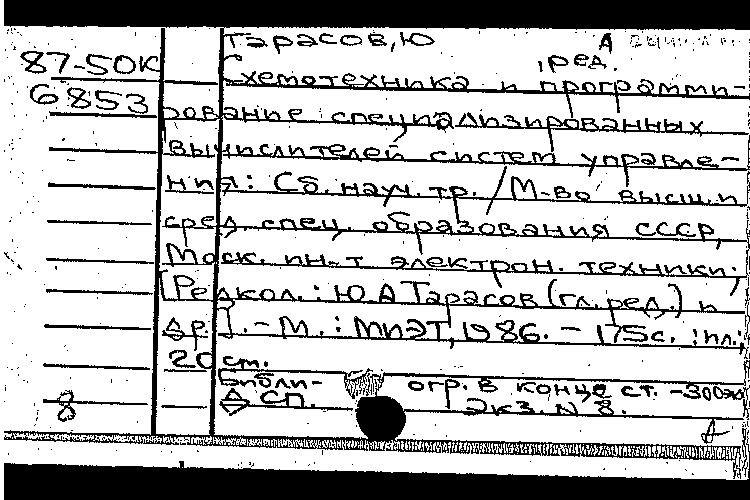 Тарасов, Ю А
87-50К , ред.
Схемотехника и программи-
6853
рование специализированных
вычислителей систем управле-
ния: Сб. науч. тр. / М-во высш. и
сред. спец. образования СССР,
Моск. ин-т электрон. техники;
[Редкол.: Ю.А Тарасов (гл. ред.) и
др.]. - М.: МИЭТ, 1986. - 175с. : ил.;
20 см.
Библи- огр. в конце ст. - 300
8 ДСП. Экз. N 8.